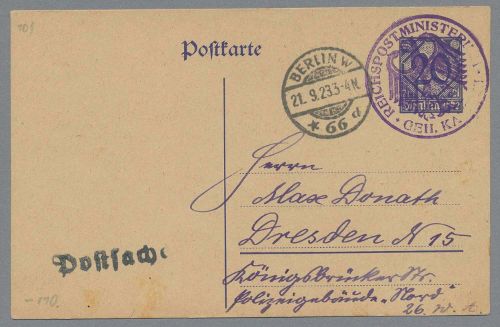 10§
Postkarte
REICHSPOSTMINISTERI
GEH. KA
20
BERLIN W
21. 9. 23. 3-4 N.
* 66 d
Herrn
Max Donath
Dresden N 15
Königsbrücker Str.
Polizeigebäude „Nord"
26. W. A.
Postsache
-190.